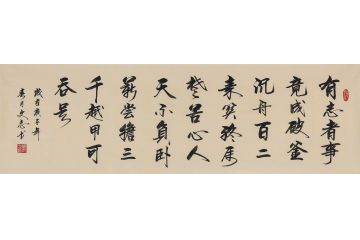 有志者事
竟成破釜
沉舟百二
秦关終属
楚苦心人
天不負卧
薪嘗膽三
千越甲可
吞吴
歲庚子年